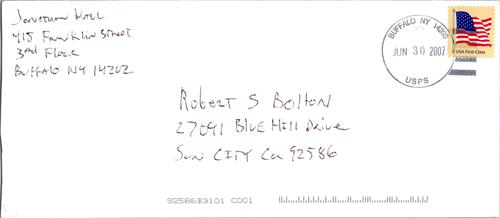 Jonathan Hall
415 Franklin Street
3rd Floor
Buffalo NY 14202
BUFFALO NY 14203
JUN 30 2007
USPS
USA First-Class
Robert S Bolton
27091 Blue Hill Drive
Sun City Ca 92586
92586$3101 C001